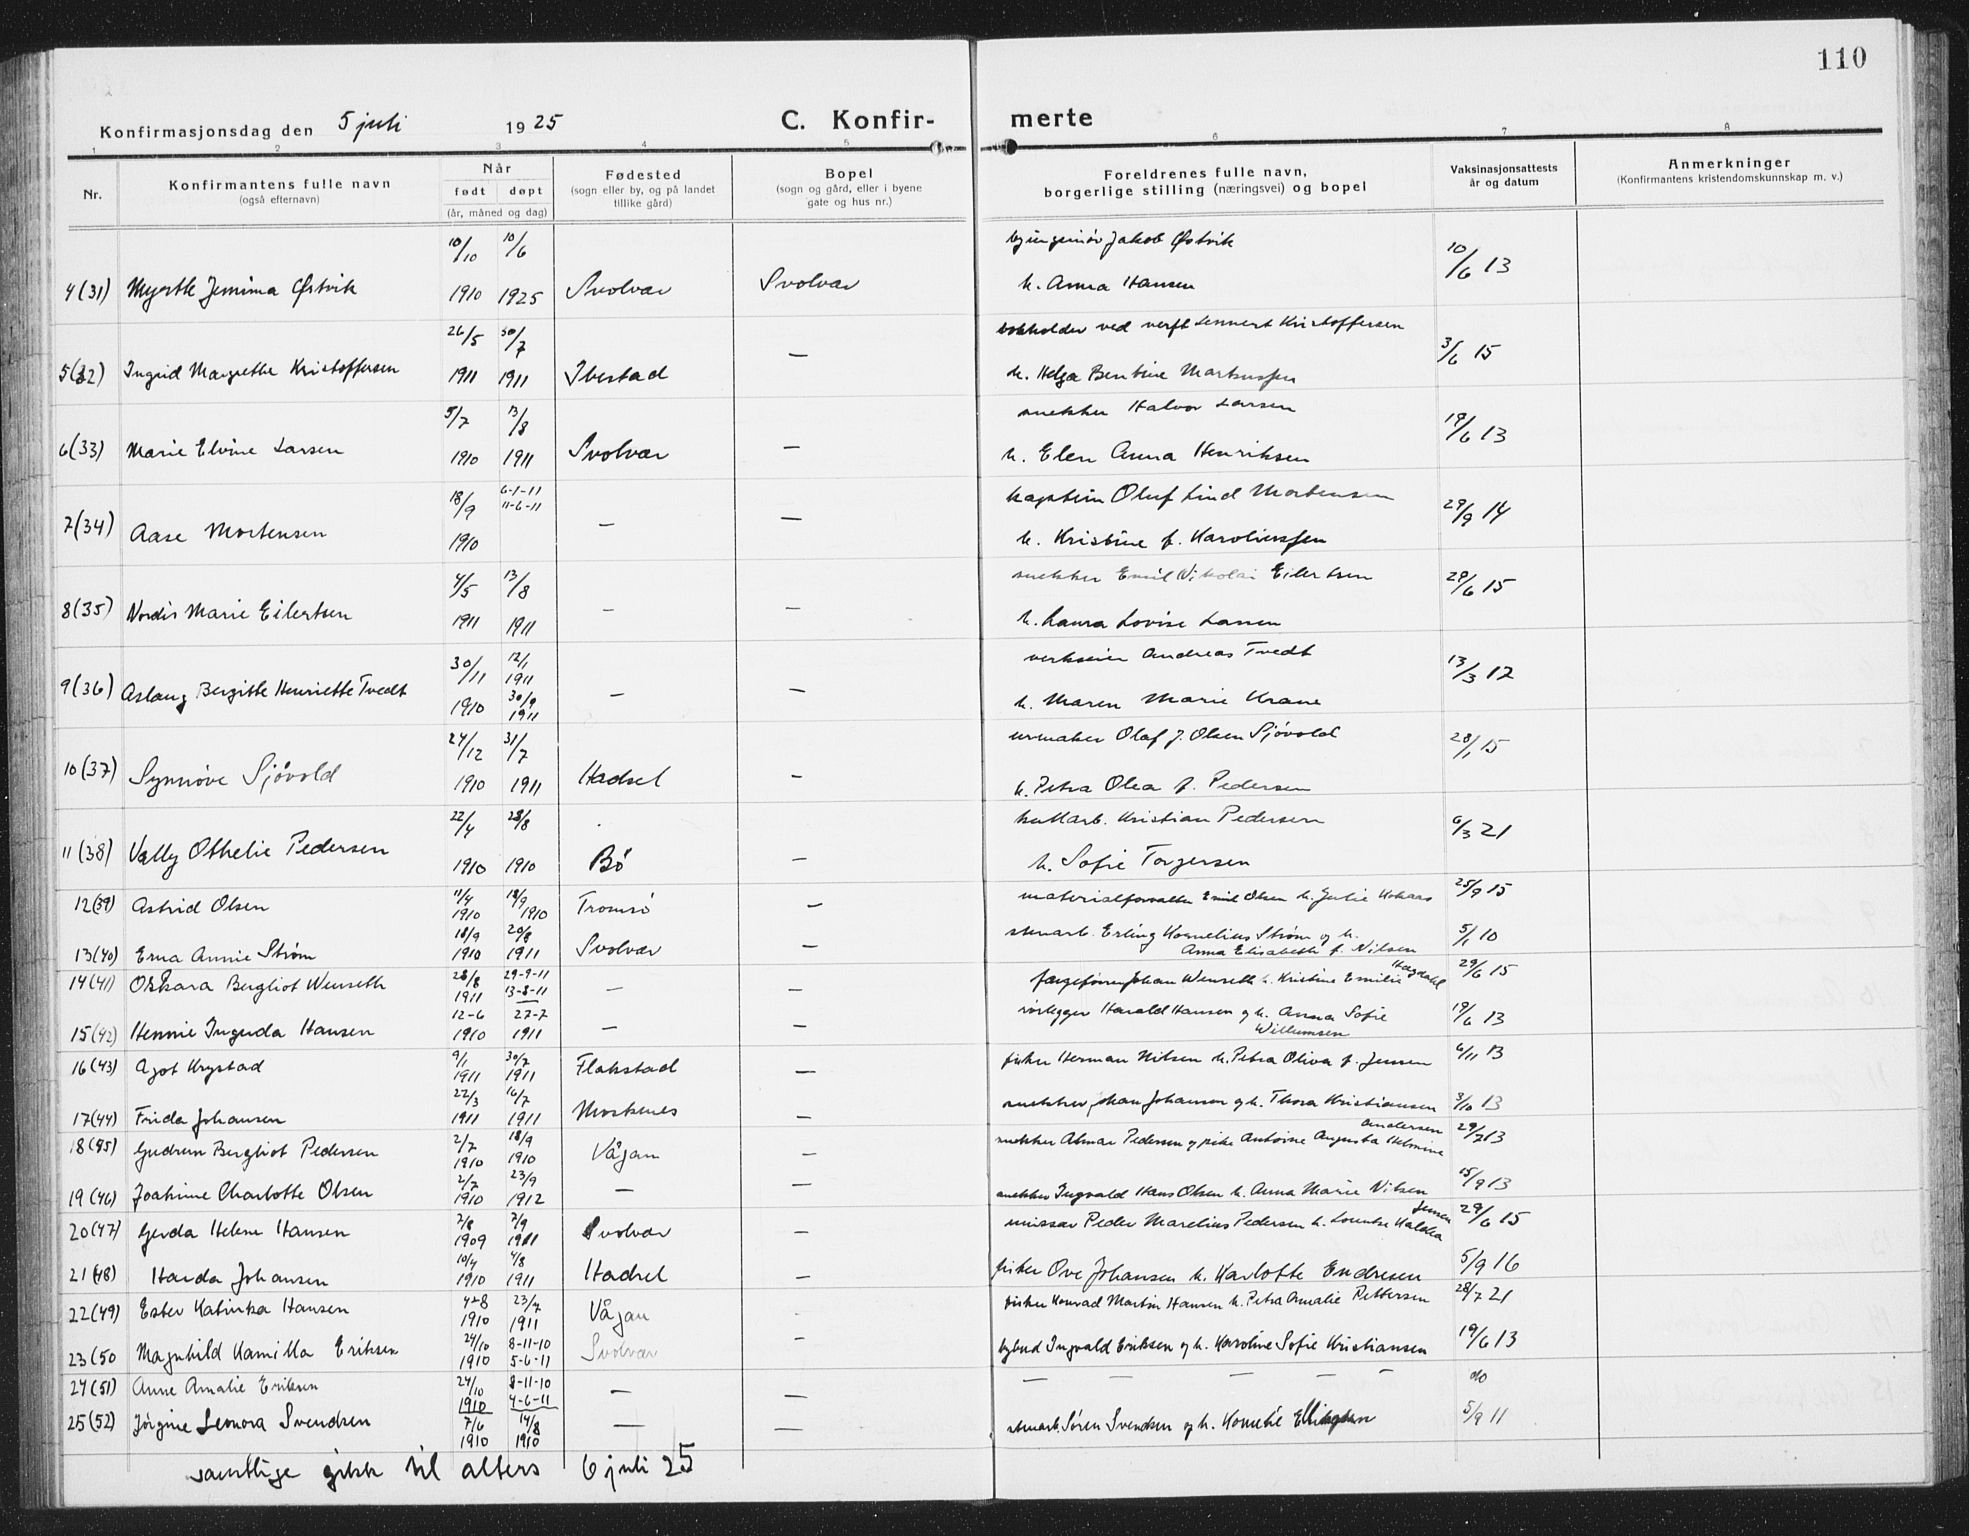 110
Konfirmasjonsdag den 5 juli 1925 C. Konfir- merte
1 2 3 4 5 6 7 8
Nr. Konfirmantens fulle navn (også efternavn) Når født døpt (år, måned og dag) Fødested (sogn eller by, og på landet tillike gård) Bopel (sogn og gård, eller i byene gate og hus nr.) Foreldrenes fulle navn, borgerlige stilling (næringsvei) og bopel Vaksinasjonsattests år og datum Anmerkninger (Konfirmantens kristendomskunnskap m. v.)
10/10 10/6 Jakob Østvik
4(31) Myrtle Jemima Østvik 1910 1925 Svolvær Svolvær h. Anna Hansen 10/6 13
26/5 30/7 bokholder ved verft Lennert Kristoffersen
5(32) Ingrid Margrethe Kristoffersen 1911 1911 Ibestad — h. Helga Bentine Markussen 3/6 15
5/7 13/8 snekker Halvor Larsen
6(33) Marie Elvine Larsen 1910 1911 Svolvær — h. Elen Anna Henriksen 19/6 13
18/9 6-1-11 11-6-11 kaptein Oluf Lind Mortensen
7(34) Aase Mortensen 1910 — — h. Kristine f. Karoliussen 29/9 14
4/5 13/8 snekker Emil Nikolai Eilertsen
8(35) Nordis Marie Eilertsen 1911 1911 — — h. Laura Lovise Larsen 29/6 15
30/11 12/1 1911 verkseier Andreas Tvedt
9(36) Aslaug Bergitte Henriette Tvedt 1910 30/9 1911 — — h. Maren Marie Krane 13/3 12
24/12 31/7 urmaker Olaf J. Olsen Sjövold
10(37) Synnöve Sjövold 1910 1911 Hadsel — h. Petra Olea f. Pedersen 28/1 15
22/4 28/8 kullarb. Kristian Pedersen
11(38) Vally Othelie Pedersen 1910 1910 Bö — h. Sofie Torgersen 6/3 21
12(39) Astrid Olsen 11/4 1910 18/9 1910 Tromsö — materialforvalter Emil Olsen h. Julie 25/9 15
13(40) Erna Annie Strøm 18/9 1910 20/8 1911 Svolvær — stenarb. Erling Kornelius Strøm og h. Anna Elisabeth f. Nilsen 5/1 10
14(41) Oskara Bergliot Wenseth 28/8 1911 29-9-11 13-8-11 — — Johan Wenseth h. Kristine Emilie Hagdahl 29/6 15
15(42) Hennie Ingerda Hansen 12-6 1910 27-7 1911 — — rörlegger Harald Hansen og h. Anna Sofie Willumsen 19/6 13
16(43) Agot Krystad 9/1 1911 30/7 1911 Flakstad — fisker Herman Nilsen h. Petra Oliva f. Jensen 6/11 13
17(44) Frida Johansen 22/3 1911 16/7 1911 Moskenes — snekker Johan Johansen og h. Thora Kristiansen 3/10 13
18(45) Gudrun Bergliot Pedersen 2/7 1910 18/9 1910 Vågan — snekker Almar Pedersen og pike Antoine Augusta Helmine Andersen 29/7 13
19(46) Joakime Charlotte Olsen 2/7 1910 23/9 1912 — — snekker Ingvald Hans Olsen h. Anna Marie Nilsen 15/9 13
20(47) Gerda Helene Hansen 2/8 1909 7/9 1911 Svolvær — minssør Peder Marelius Pedersen h. Lorentse Jensen 29/6 15
21(48) Harda Johansen 10/4 1910 4/8 1911 Hadsel — fisker Ove Johansen h. Karlotte Endresen 5/9 16
22(49) Ester Katinka Hansen 4-8 1910 23/7 1911 Vågan - fisker Konrad Martin Hansen h. Petra Amalie Pettersen 28/7 21
23(50 Magnhild Kamilla Eriksen 24/10 1910 8-11-10 5-6-11 Svolvær - bybud Ingvald Eriksen og h. Karoline Sofie Kristiansen 19/6 13
24(51) Anne Amalie Eriksen 24/10 1910 8-11-10 4-6-11 — — — — — — — do
25(52) Jörgine Leonora Svendsen 7/6 1910 14/8 1910 — — stenarb. Sören Svendsen og h. Kornelie Ellingsen 5/9 11
samtlige gikk til alters 6 juli 25